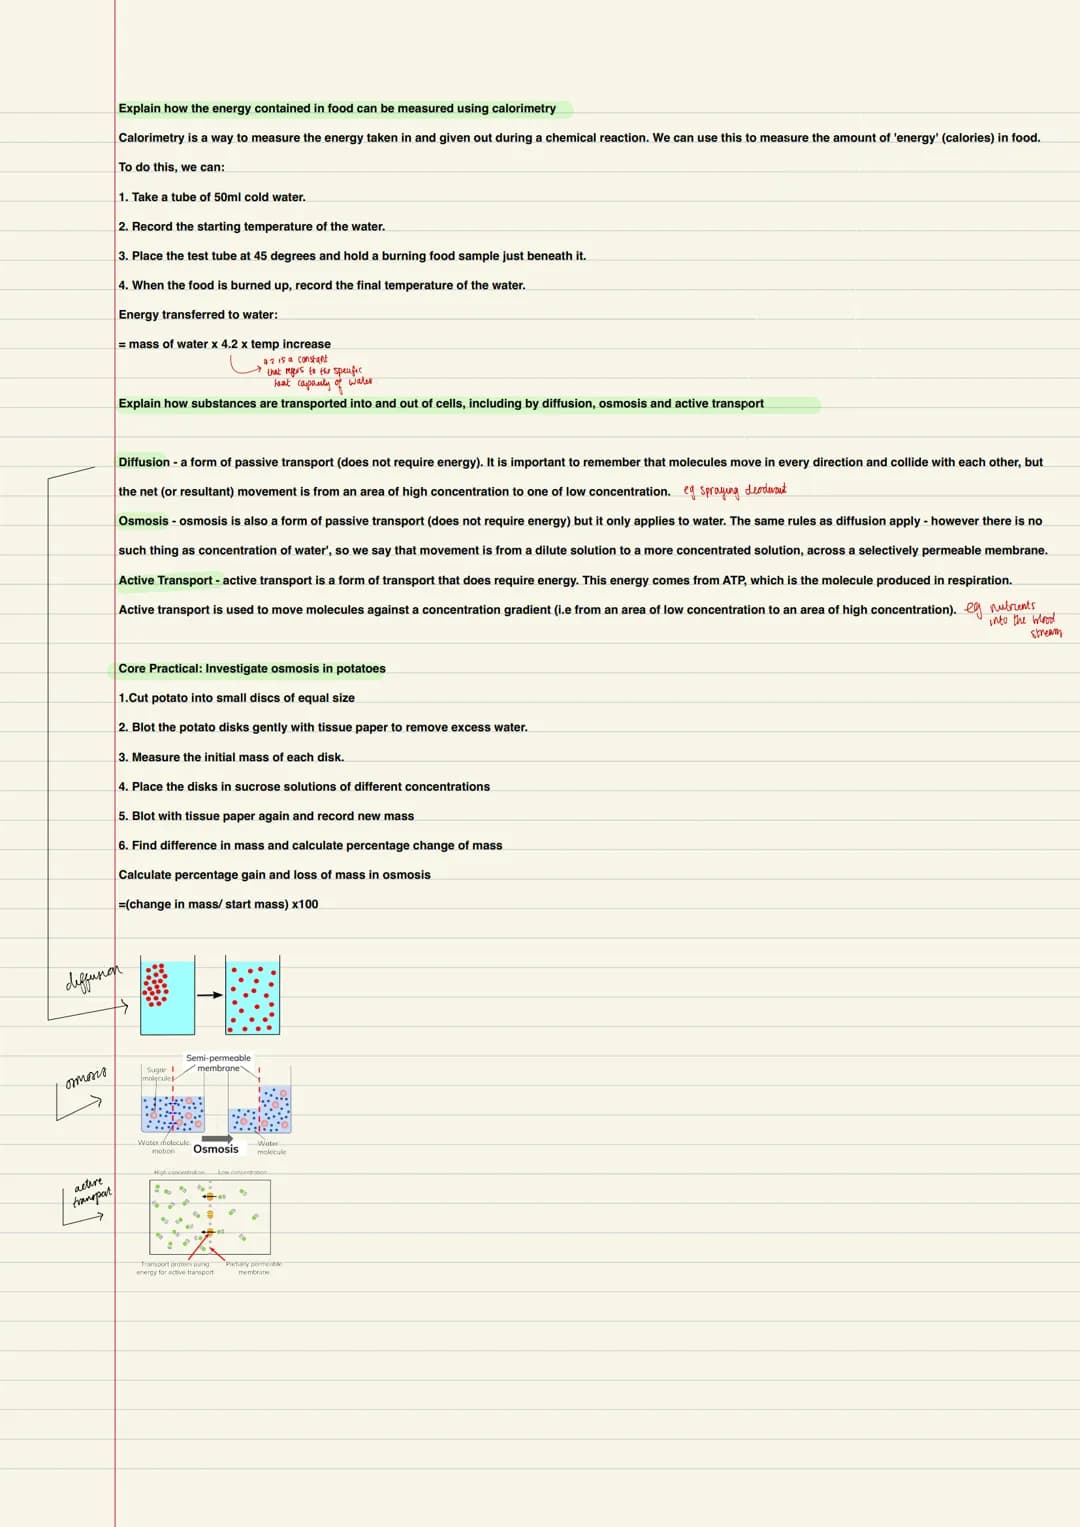 Explain how the energy contained in food can be measured using calorimetry
Calorimetry is a way to measure the energy taken in and given out during a chemical reaction. We can use this to measure the amount of 'energy' (calories) in food.
To do this, we can:
1. Take a tube of 50ml cold water.
2. Record the starting temperature of the water.
3. Place the test tube at 45 degrees and hold a burning food sample just beneath it.
4. When the food is burned up, record the final temperature of the water.
Energy transferred to water:
= mass of water x 4.2 x temp increase
4.2 is a constant
that refers to the specific
heat capacity of water
Explain how substances are transported into and out of cells, including by diffusion, osmosis and active transport
Diffusion - a form of passive transport (does not require energy). It is important to remember that molecules move in every direction and collide with each other, but
the net (or resultant) movement is from an area of high concentration to one of low concentration. eg spraying deodorant
Osmosis - osmosis is also a form of passive transport (does not require energy) but it only applies to water. The same rules as diffusion apply - however there is no
such thing as concentration of water', so we say that movement is from a dilute solution to a more concentrated solution, across a selectively permeable membrane.
Active Transport - active transport is a form of transport that does require energy. This energy comes from ATP, which is the molecule produced in respiration.
Active transport is used to move molecules against a concentration gradient (i.e from an area of low concentration to an area of high concentration). eg nutrients
into the blood
stream
Core Practical: Investigate osmosis in potatoes
1.Cut potato into small discs of equal size
2. Blot the potato disks gently with tissue paper to remove excess water.
3. Measure the initial mass of each disk.
4. Place the disks in sucrose solutions of different concentrations
5. Blot with tissue paper again and record new mass
6. Find difference in mass and calculate percentage change of mass
Calculate percentage gain and loss of mass in osmosis
=(change in mass/ start mass) x100
diffusion
osmosis
Semi-permeable
membrane
Sugar
molecule
Water molecule
motion
Osmosis
Water
molecule
active
transport
High concentration
Low concentration
Transport protein using
energy for active transport
Partially permeable
membrane